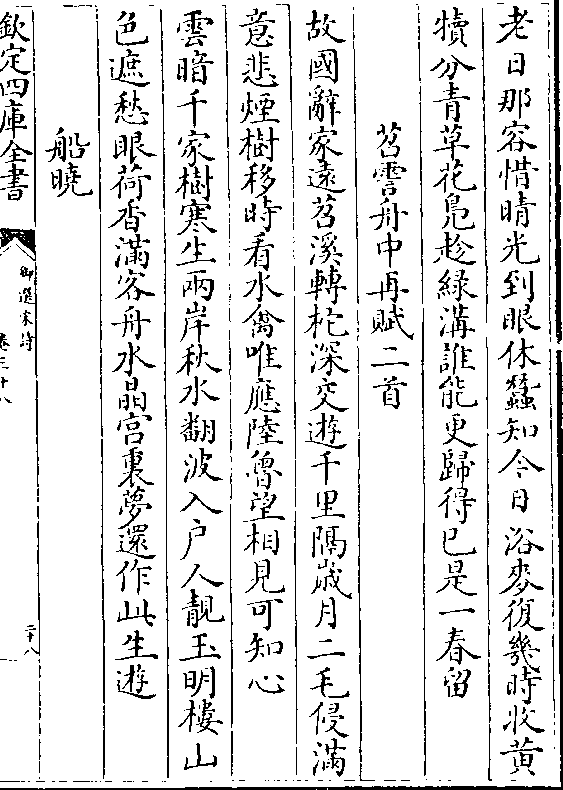 老日那容惜晴光到眼休蠶知今日浴麥復幾時收黄
犢分青草花凫趁緑溝誰能更歸得已是一春留
苕霅舟中再賦二首
故國辭家遠苕溪轉柁深交遊千里隔歲月二毛侵滿
意悲煙樹移時看水禽唯應陸魯望相見可知心
雲暗千家樹寒生兩岸秋水翻波入户人靚玉明樓山
色遮愁眼荷香滿客舟水晶宫裏夢還作此生遊
船曉
欽定四庫全書
御選宋詩
卷三十八
二十八